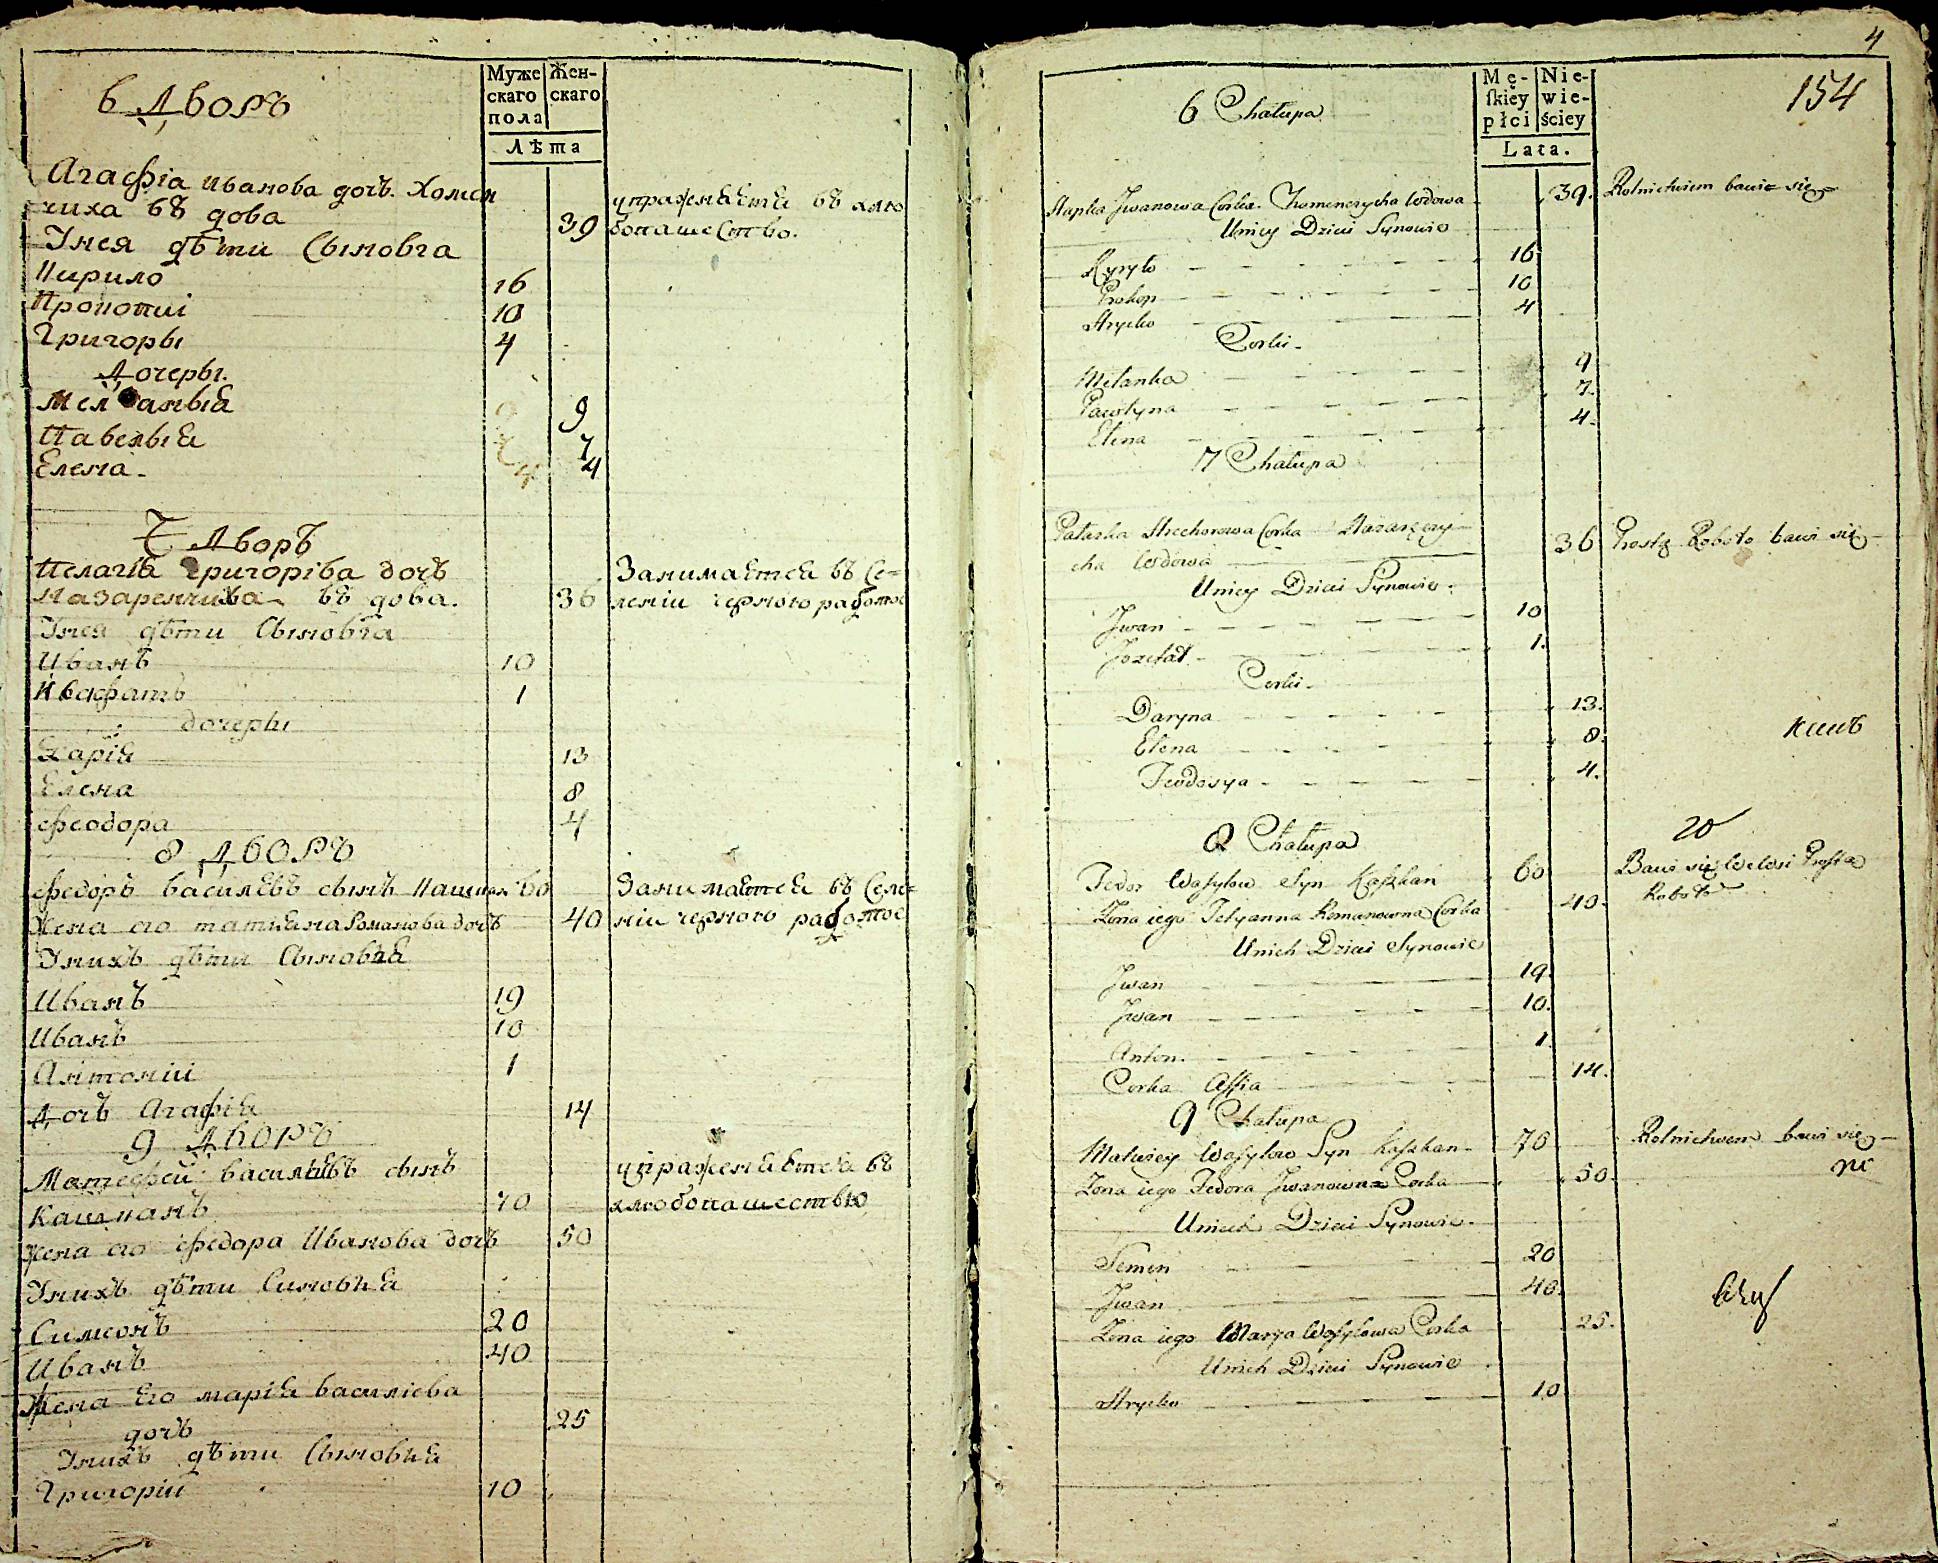 Муже
скаго
пола
Жен-
скаго
Лѣта
6 Дворъ
Агафіа иванова дочъ Хомен
чиха въдова
39
упражняетя въ хлю
бопашество.
Інея дѣти Сыновга
Кирило 16
Прокопиі 10
Григоры 4
Дочеры.
Меланыя 9
Павелыя 7
Елена 4
7 Дворъ
Пелагія Григоріва дочъ
Назаренчиха въдова. 36
Занимается въ Се=
леніи черною работою
Інея дѣти Сыновга
Иванъ 10
Иасафатъ 1
дочеры
Дарія 13
Елена 8
Феодора 4
8 Дворъ
Федоръ василевъ сынъ Кашкан 60
Занимается въ Селе=
Жена его татияна Романова дочъ 40
ніи черною работою
Інихъ дѣти Сыновга
Иванъ 19
Иванъ 10
Антоніи 1
Дочъ Агафія 14
9 Дворъ
Матефеи василиевъ сынъ
Кашканъ 70
упраженяется въ
хлюбопашествю
жена его федора Иванова дочъ 50
Інихъ дѣти Синовия
Симеонъ 20
Иванъ 40
Жена Его марія василіева
дочъ 25
Інихъ дѣти Сыновия
Григоріи 10
4
154
Mę-
ſkiey
płci
Nie-
wie-
ściey
Lata.
6 Chałupa
Hapka Jwanowa Corka Chomenczycha wdowa 39. Rolnictwem bawi się
Uniey Dzieci Synowie
Kyryło 16.
Prokop 10
Hrycko 4
Corki
Melanka 9
Pawłyna 7.
Elena 4.
7 Chałupa
Palaska Hrechorowa Corka Nazaręczy
cha wdowa 36 Prostą Robotą bawi się
Uniey Dzieci Synowie.
Jwan 10
Jozefat 1.
Corki
Daryna 13.
Elena 8.
Teodosya 4.
8 Chałupa
20
Fedor Wasylow Syn Kaszkan 60
Bawi się We Wsi Prostą
Robotą
Zona iego Tetyanna Romanowna Corka 40.
Unich Dzieci Synowie
Jwan 19.
Jwan 10.
Anton. 1
Corka Affia 14.
9 Chałupa
Matwiey Wasylow Syn Kaszkan 70 Rolnictwem bawi się
Zona iego Fedora Jwanowna Corka 50.
Unich Dzieci Synowie.
Semen 20
Jwan 40.
Zona iego Marya Wasylowa Corka 25.
Unich Dzieci Synowie
Hrycko 10